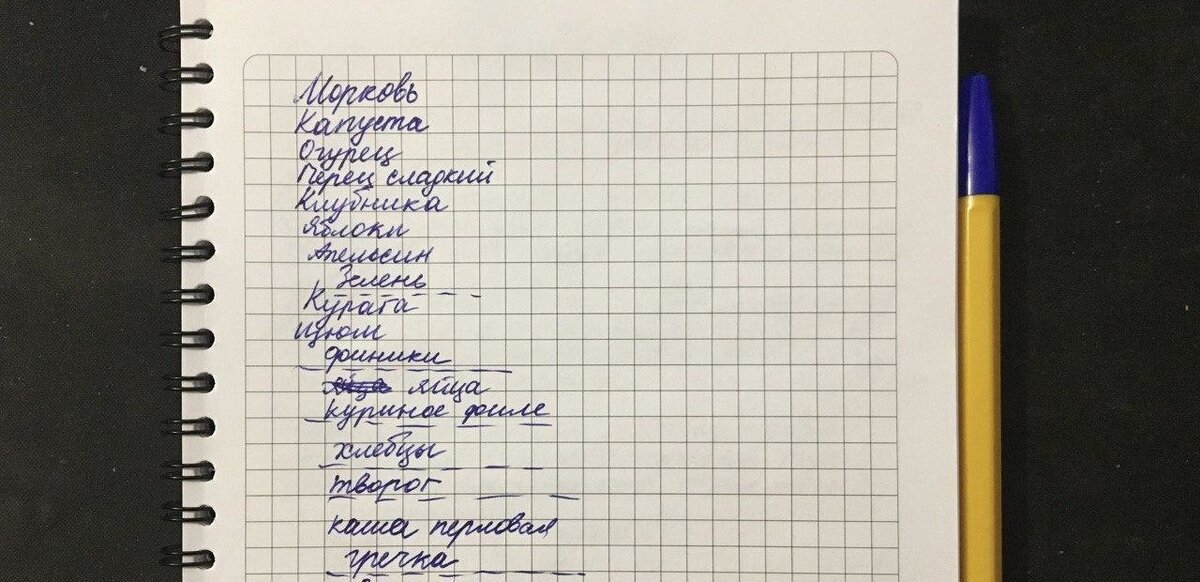 Морковь
Капуста
Огурец
Перец сладкий
Клубника
Яблоки
Апельсин
Зелень
Курага
изюм
финики
яйца
куриное филе
хлебцы
творог
каша перловая
гречка